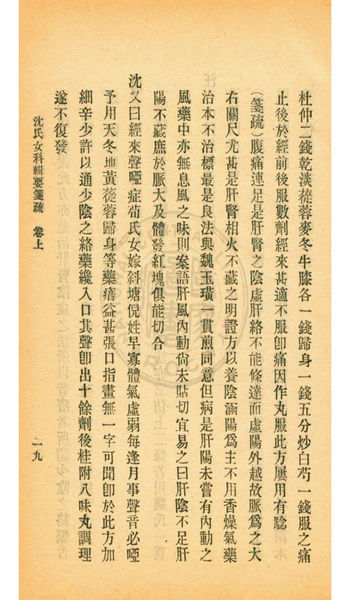 杜仲二錢乾淡蓯蓉麥冬牛膝各一錢歸身一錢五分炒白芍一錢服之痛
止後於經前後服數劑經來甚適不服卽痛因作丸服此方屢用有驗
(箋疏)腹痛連足是肝腎之陰虛肝絡不能條達而虛陽外越故脈爲之大
右關尺尤甚是肝腎相火不藏之明證方以養陰涵陽爲主不用香燥氣藥
治本不治標最是良法與魏玉璜一貫煎同意但病是肝陽未嘗有內動之
風藥中亦無息風之味則案語肝風內動尙未貼切宜易之曰肝陰不足肝
陽不藏庶於脈大及體發紅塊俱能切合
沈又曰經來聲啞症荀氏女嫁斜塘倪姓早寡體氣虛弱每逢月事聲音必啞
予用天冬地黃蓯蓉歸身等藥瘖益甚張口指畫無一字可聞卽於此方加
細辛少許以通少陰之絡藥纔入口其聲卽出十餘劑後桂附八味丸調理
遂不復發
沈氏女科輯要箋疏 卷上
一九